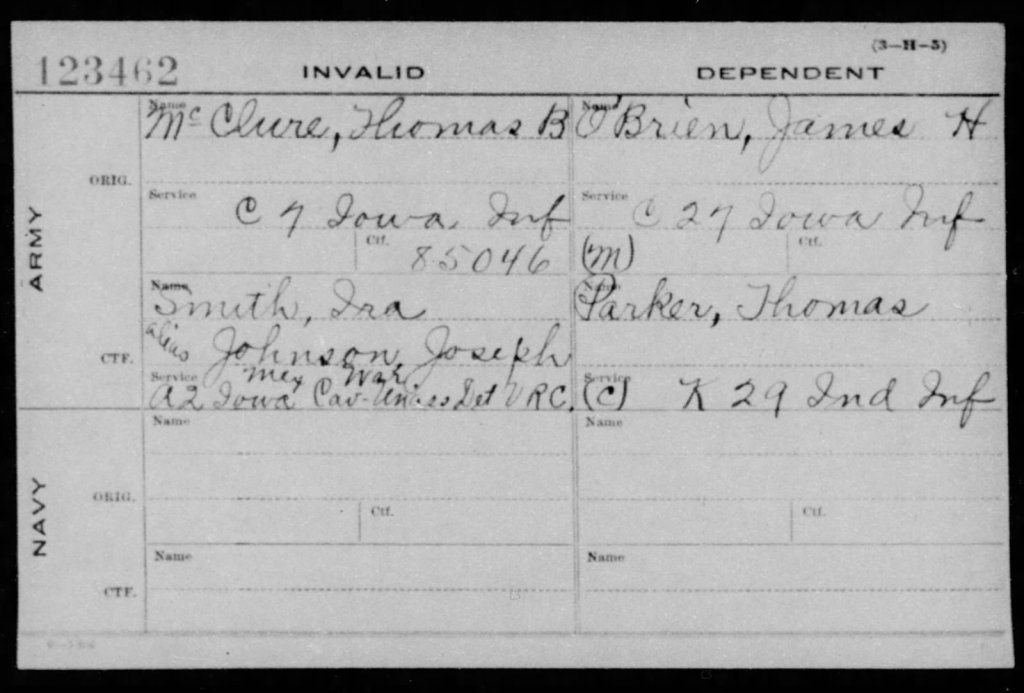 (3-H-5)
123462 INVALID DEPENDENT
ARMY
ORIG.
Name
McClure, Thomas B
Service
C 7 Iowa Inf
Ctf.
85046
Name
O'Brien, James H
Service
C 27 Iowa Inf
Ctf.
(M)
CTF.
Name
Smith, Ira
alias Johnson, Joseph
Mex War
Service
A 2 Iowa Cav- Det VRC.
Name
Parker, Thomas
Service
(C) K 29 Ind Inf
NAVY
ORIG.
Name
Ctf.
Name
Ctf.
CTF.
Name
Name